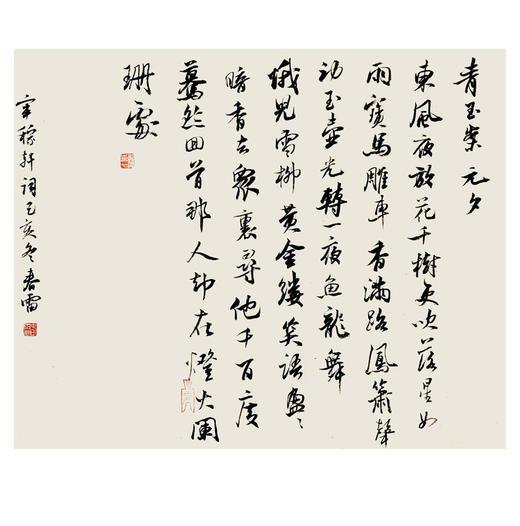 青玉案 元夕
東風夜放花千樹更吹落星如
雨寶馬雕車香滿路鳳簫聲
動玉壺光轉一夜魚龍舞
蛾兒雪柳黃金縷笑語盈〻
暗香去眾裏尋他千百度
驀然回首那人却在燈火闌
珊處
辛稼軒詞己亥冬春雷